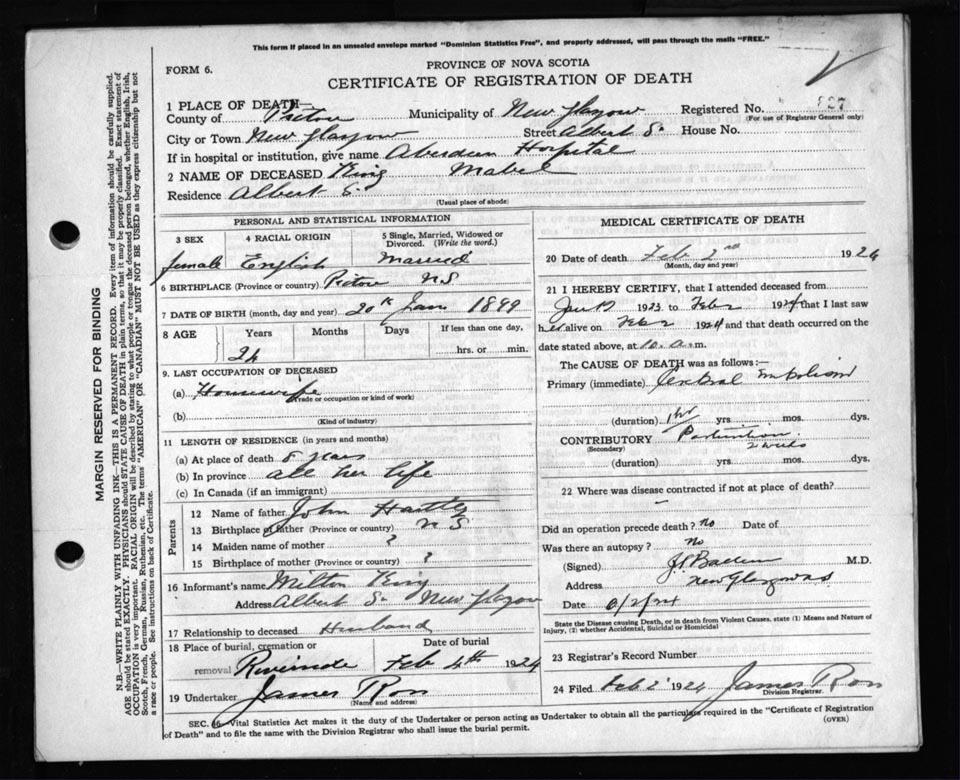 This form if placed in an unsealed envelope marked "Dominion Statistics Free", and properly addressed, will pass through the mails "FREE."
FORM 6.
PROVINCE OF NOVA SCOTIA
CERTIFICATE OF REGISTRATION OF DEATH
1 PLACE OF DEATH—
County of Pictou Municipality of New Glasgow Registered No. 827
(For use of Registrar General only)
City or Town New Glasgow Street Albert S. House No.
If in hospital or institution, give name Aberdeen Hospital
2 NAME OF DECEASED King Mabel
Residence Albert S.
(Usual place of abode)
PERSONAL AND STATISTICAL INFORMATION
3 SEX 4 RACIAL ORIGIN 5 Single, Married, Widowed or Divorced. (Write the word.)
female English Married
6 BIRTHPLACE (Province or country) Pictou N S
7 DATE OF BIRTH (month, day and year) 20th Jan 1899
8 AGE Years Months Days If less than one day,
24 hrs. or min.
9. LAST OCCUPATION OF DECEASED
(a) Housewife
(Trade or occupation or kind of work)
(b)
(Kind of industry)
11 LENGTH OF RESIDENCE (in years and months)
(a) At place of death 5 years
(b) In province all her life
(c) In Canada (if an immigrant)
Parents
12 Name of father John Hartly
13 Birthplace of father (Province or country) N S
14 Maiden name of mother ?
15 Birthplace of mother (Province or country) ?
16 Informant's name Milton King
Address Albert S. New Glasgow
17 Relationship to deceased Husband
18 Place of burial, cremation or removal Riverside Date of burial Feb 4th 1924
19 Undertaker James Ross
(Name and address)
MEDICAL CERTIFICATE OF DEATH
20 Date of death Feb 2nd 1924
(Month, day and year)
21 I HEREBY CERTIFY, that I attended deceased from
Jan 1923 to Feb 2 1924 that I last saw
her alive on Feb 2 1924 and that death occurred on the
date stated above, at 10. a.m.
The CAUSE OF DEATH was as follows:—
Primary (immediate) Cerebral Embolism
(duration) 1 hr yrs mos. dys.
CONTRIBUTORY Parturition
(Secondary) 2 weeks
(duration) yrs mos. dys.
22 Where was disease contracted if not at place of death?
Did an operation precede death? no Date of
Was there an autopsy? no
(Signed) M.D.
Address New Glasgow
Date 2/2/24
State the Disease causing Death, or in death from Violent Causes, state (1) Means and Nature of Injury, (2) whether Accidental, Suicidal or Homicidal
23 Registrar's Record Number
24 Filed Feb 2 1924 James Ross
Division Registrar.
SEC. 46—Vital Statistics Act makes it the duty of the Undertaker or person acting as Undertaker to obtain all the particulars required in the "Certificate of Registration
of Death" and to file the same with the Division Registrar who shall issue the burial permit.
(OVER)
MARGIN RESERVED FOR BINDING
N.B.—WRITE PLAINLY WITH UNFADING INK—THIS IS A PERMANENT RECORD. Every item of information should be carefully supplied.
AGE should be stated EXACTLY. PHYSICIANS should STATE CAUSE OF DEATH in plain terms, so that it may be properly classified. Exact statement of
OCCUPATION is very important. RACIAL ORIGIN will be described by stating to what people or tongue the deceased person belonged, whether English, Irish,
Scotch, French, German, Russian, Ruthenian, etc. The terms "AMERICAN" or "CANADIAN" MUST NOT BE USED as they express citizenship but not
a race or people. See instructions on back of Certificate.